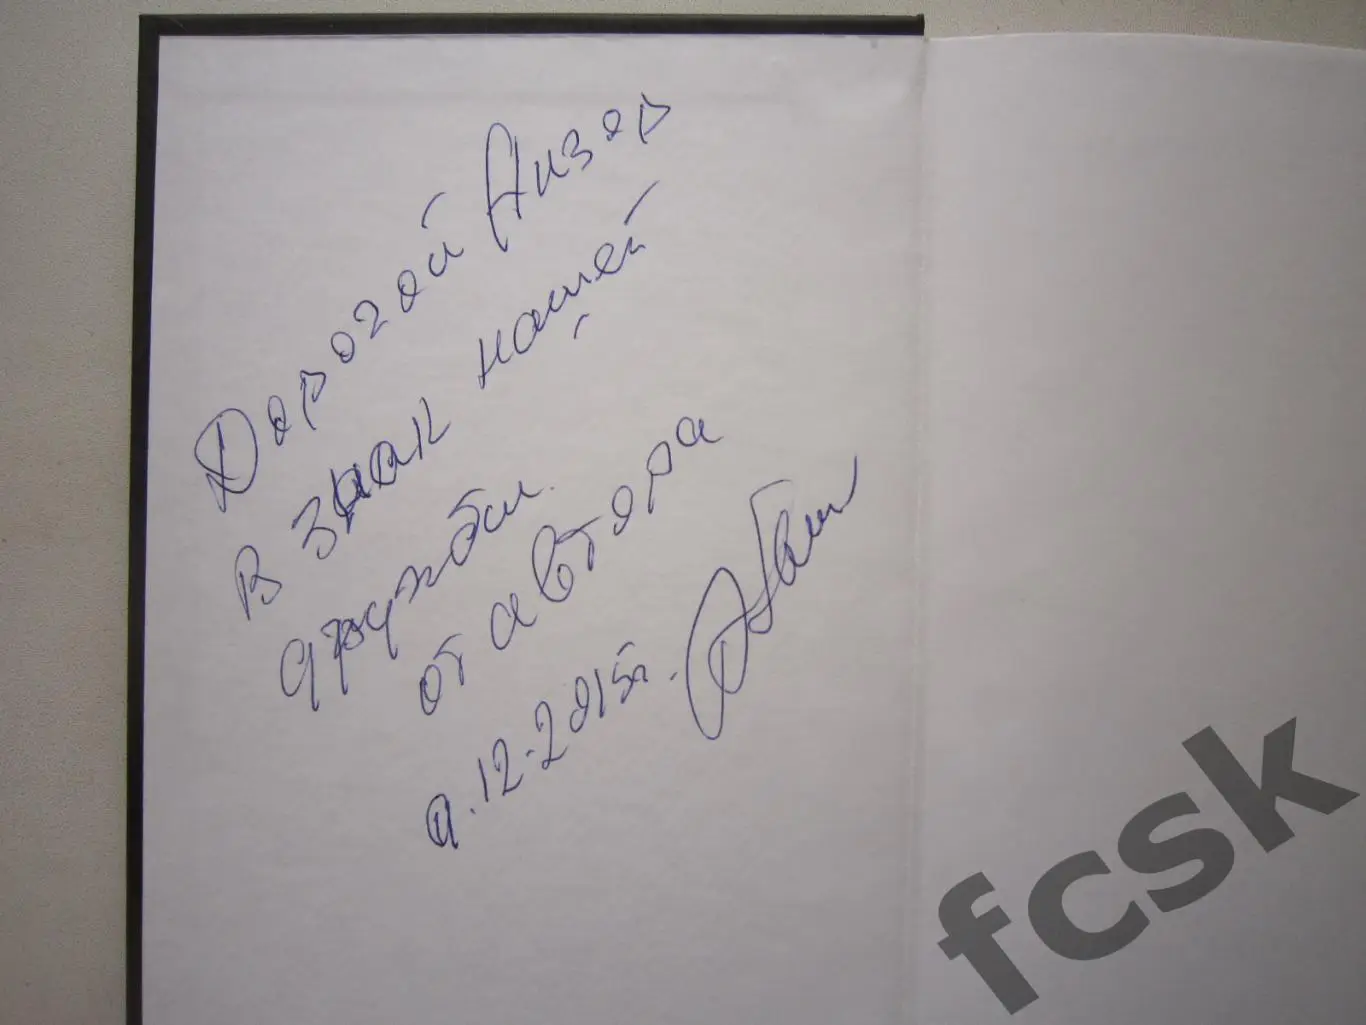 Дорогой Анзор
в знак нашей
дружбы.
от автора
9.12-2015г.
fcsk